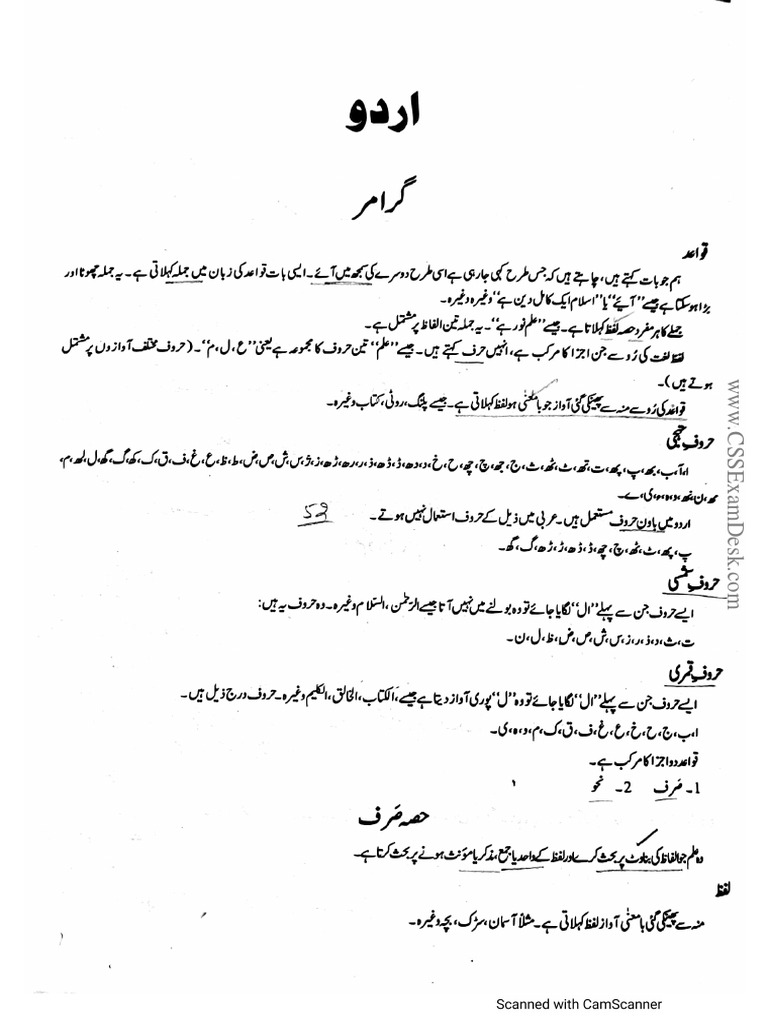 اردو
گرامر
قواعد
ہم جو بات کہتے ہیں، چاہتے ہیں کہ جس طرح کہی جا رہی ہے اسی طرح دوسرے کی سمجھ میں آئے۔ ایسی بات قواعد کی زبان میں جملہ کہلاتی ہے۔ یہ جملہ چھوٹا اور
بڑا ہو سکتا ہے جیسے "آیئے" یا "اسلام ایک کامل دین ہے" وغیرہ وغیرہ۔
جملے کا ہر مفرد حصہ لفظ کہلاتا ہے۔ جیسے "علم نور ہے"۔ یہ جملہ تین الفاظ پر مشتمل ہے۔
لفظ لغت کی رُو سے جن اجزا کا مرکب ہے، انہیں حرف کہتے ہیں۔ جیسے "علم" تین حروف کا مجموعہ ہے یعنی "ع، ل، م"۔ (حروف مختلف آوازوں پر مشتمل
ہوتے ہیں)۔
قواعد کی رُو سے منہ سے پھینکی گئی آواز جو بامعنٰی ہو لفظ کہلاتی ہے۔ جیسے پلنگ، روٹی، کتاب وغیرہ۔
حروف تہجی
ا، آ، ب، بھ، پ، پھ، ت، تھ، ٹ، ٹھ، ث، ج، جھ، چ، چھ، ح، خ، د، دھ، ڈ، ڈھ، ذ، ر، رھ، ڑ، ڑھ، ز، ژ، س، ش، ص، ض، ط، ظ، ع، غ، ف، ق، ک، کھ، گ، گھ، ل، لھ، م،
مھ، ن، نھ، و، ہ، ء، ی، ے۔
اردو میں باون حروف مستعمل ہیں۔ عربی میں ذیل کے حروف استعمال نہیں ہوتے۔ 52
پ، پھ، ٹ، ٹھ، چ، چھ، ڈ، ڈھ، ژ، ڑ، ڑھ، گ، گھ۔
حروف شمسی
ایسے حروف جن سے پہلے "ال" لگایا جائے تو وہ بولنے میں نہیں آتا جیسے الرّحمٰن، السّلام وغیرہ۔ وہ حروف یہ ہیں:
ت، ث، د، ذ، ر، ز، س، ش، ص، ض، ظ، ل، ن۔
حروف قمری
ایسے حروف جن سے پہلے "ال" لگایا جائے تو وہ "ل" پوری آواز دیتا ہے جیسے، الکتاب، الخالق، الکلیم وغیرہ۔ حروف درج ذیل ہیں۔
ا، ب، ج، ح، خ، ع، غ، ف، ق، ک، م، و، ہ، ی۔
قواعد دو اجزا کا مرکب ہے۔
1۔ صَرف 2۔ نحو
حصہ صَرف
وہ علم جو الفاظ کی بناوٹ پر بحث کرے اور لفظ کے واحد یا جمع، مذکر یا مؤنث ہونے پر بحث کرتا ہے۔
لفظ
منہ سے پھینکی گئی بامعنٰی آواز لفظ کہلاتی ہے۔ مثلاً آسمان، سڑک، بچہ وغیرہ۔
www.CSSExamDesk.com
Scanned with CamScanner